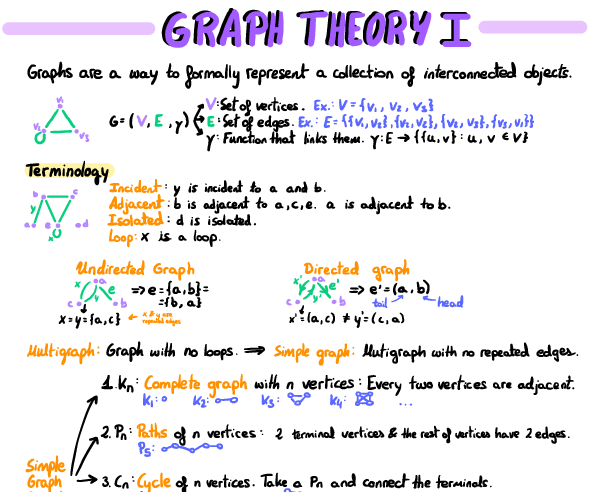 GRAPH THEORY I
Graphs are a way to formally represent a collection of interconnected objects.
V₁
V₂ V₃
G=(V, E, γ)
V: Set of vertices. Ex.: V={V₁, V₂, V₃}
E: Set of edges. Ex.: E={{V₁,V₂},{V₂,V₂},{V₂,V₃},{V₃,V₁}}
γ: Function that links them. γ: E → {{u,v}: u, v ∈ V}
Terminology
b c
y
a e d
x
Incident: y is incident to a and b.
Adjacent: b is adjacent to a,c,e. a is adjacent to b.
Isolated: d is isolated.
Loop: x is a loop.
Undirected Graph
a
x y e
c b
⇒ e={a,b}=
={b,a}
x=y={a,c} ← x & y are
repeated edges
Directed graph
a
x' y' e'
c b
⇒ e'=(a,b)
tail head
x'=(a,c) ≠ y'=(c,a)
Multigraph: Graph with no loops. ⇒ Simple graph: Mutigraph with no repeated edges.
1. Kn: Complete graph with n vertices: Every two vertices are adjacent.
K₁: K₂: K₃: K₄: ...
2. Pn: Paths of n vertices: 2 terminal vertices & the rest of vertices have 2 edges.
P₅:
Simple
Graph
3. Cn: Cycle of n vertices. Take a Pn and connect the terminals.